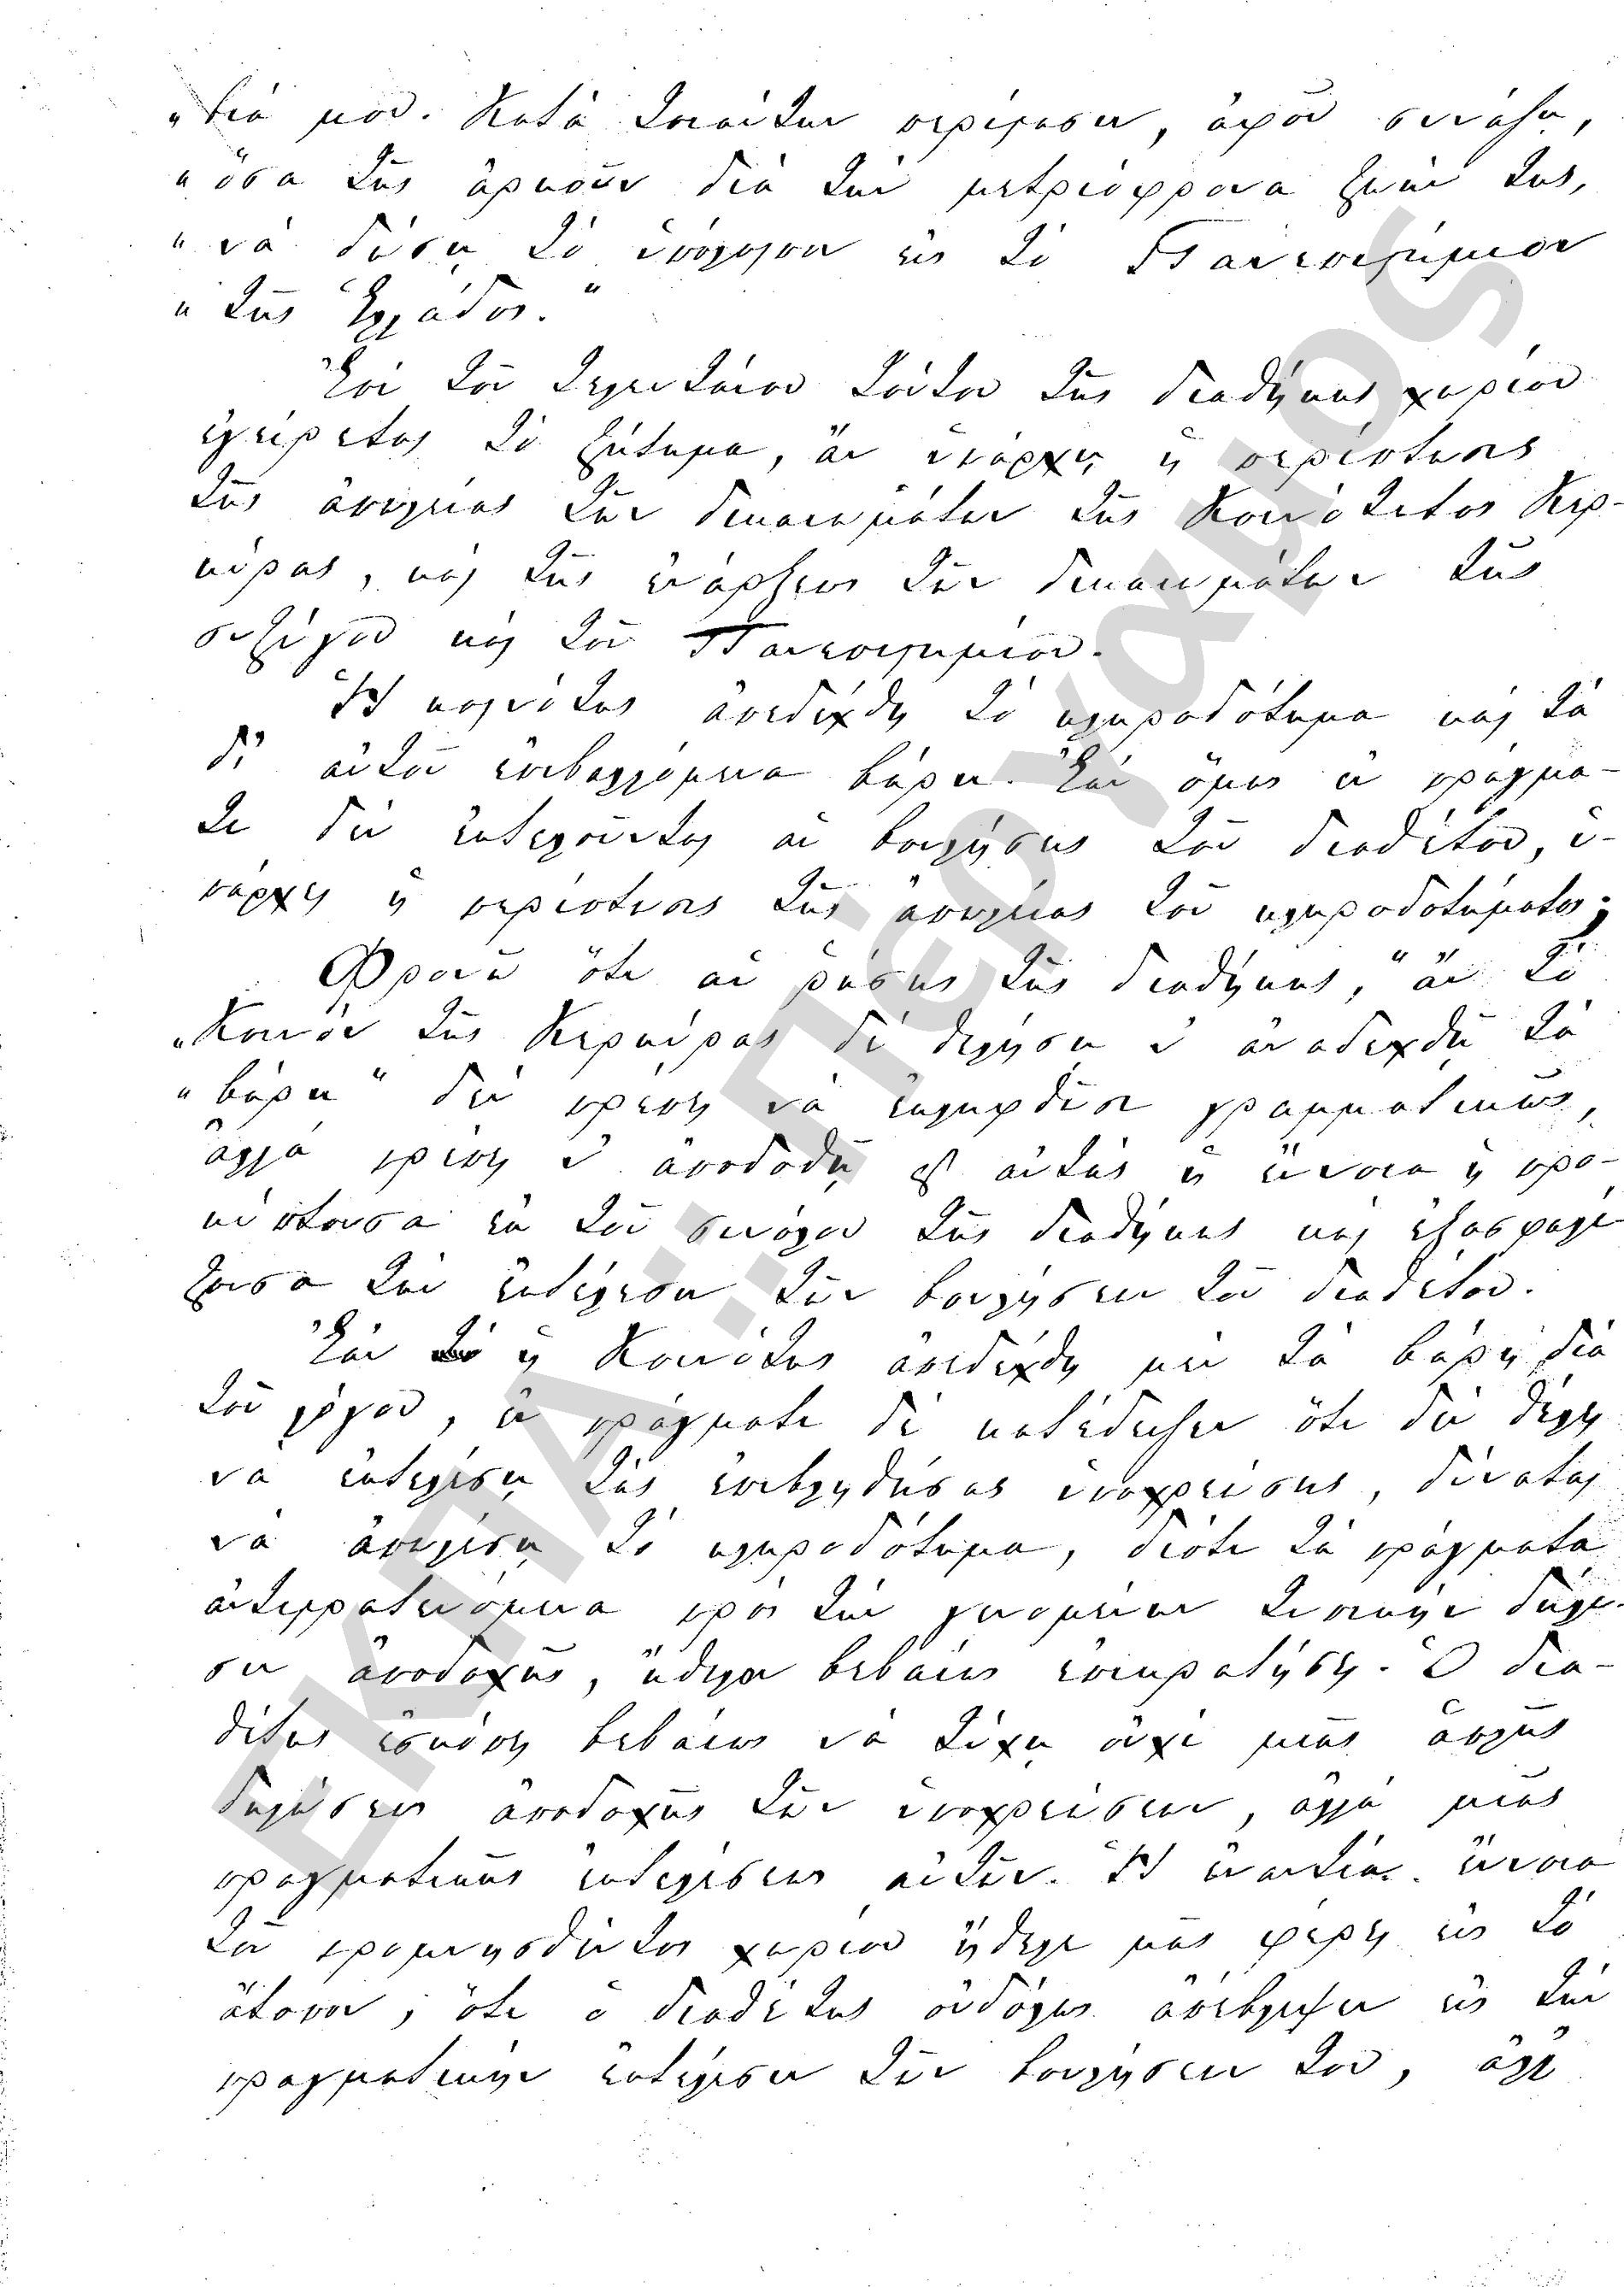 „ βιά μου. Κατὰ τοιαύτην περίπτωσιν, ἀφοῦ
„ ὅσα τῆς ἀρκοῦν διὰ τὴν μετριόφρονα ζωήν της,
„ νὰ δώσῃ τὸ ἐπίλοιπον εἰς τὸ Πανεπιστήμιον
„ τῆς Ἑλλάδος.“
Ἐπὶ τοῦ τελευταίου τούτου τῆς διαθήκης χωρίου
ἐγείρεται τὸ ζήτημα, ἂν ὑπάρχῃ ἡ περίστασις
τῆς ἀπωλείας τῶν δικαιωμάτων τῆς Κοινότητος Κερ-
κύρας, καὶ τῆς ἐνάρξεως τῶν δικαιωμάτων τῆς
συζύγου καὶ τοῦ Πανεπιστημίου.
Ἡ κοινότης ἀπεδέχθη τὸ κληροδότημα καὶ τὰ
δι’ αὐτοῦ ἐπιβαλλόμενα βάρη. Ἐὰν ὅμως ἐν πράγμα-
τι δὲν ἐκτελοῦνται αἱ βουλήσεις τοῦ διαθέτου, ὑ-
πάρχει ἡ περίστασις τῆς ἀπωλείας τοῦ κληροδοτήματος;
Φρονῶ ὅτι αἱ ῥήσεις τῆς διαθήκης, “ἂν τὸ
„Κοινὸν τῆς Κερκύρας δὲ θελήσῃ ν’ ἀναδεχθῇ τὰ
„ βάρη“ δὲν πρέπει νὰ ἐκληφθῶσι γραμματικῶς,
ἀλλὰ πρέπει ν’ ἀποδοθῇ εἰς αὐτὰς ἡ ἔννοια ἡ προ-
κύπτουσα ἐκ τοῦ συνόλου τῆς διαθήκης καὶ ἐξασφαλί
ζουσα τὴν ἐκτέλεσιν τῶν βουλήσεων τοῦ διαθέτου.
Ἐὰν ἡ Κοινότης ἀπεδέχθη μὲν τὰ βάρη διὰ
τοῦ λόγου, ἐν πράγματι δὲ κατέδειξεν ὅτι δὲν θέλει
νὰ ἐκτελέσῃ τὰς ἐπιβληθείσας ὑποχρεώσεις, δύναται
νὰ ἀπωλέσῃ τὸ κληροδότημα, διότι τὰ πράγματα
ἀντιπραττόμενα πρὸς τὴν γενομένην τυπικὴν δήλω-
σιν ἀποδοχῆς, ἤθελον βεβαίως ἐπικρατήσει. Ὁ δια-
θέτης ἐσκόπει βεβαίως νὰ τύχῃ οὐχὶ μιᾶς ἁπλῆς
δηλώσεως ἀποδοχῆς τῶν ὑποχρεώσεων, ἀλλὰ μιᾶς
πραγματικῆς ἐκτελέσεως αὐτῶν. Ἡ ἐναντία ἔννοια
τοῦ προμνησθέντος χωρίου ἤθελε μᾶς φέρει εἰς τὸ
ἄτοπον, ὅτι ὁ διαθέτης οὐδόλως ἀπέβλεψεν εἰς τὴν
πραγματικὴν ἐκτέλεσιν τῶν βουλήσεών του, ἀλλ’